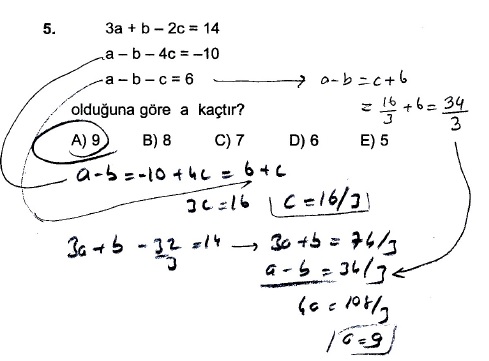 5. 3a + b – 2c = 14
a – b – 4c = –10
a – b – c = 6 → a-b = c+6
olduğuna göre a kaçtır? = 16/3 + 6 = 34/3
A) 9 B) 8 C) 7 D) 6 E) 5
a-b = -10 + 4c = 6 + c
3c = 16 c = 16/3
3a + b - 32/3 = 14 → 3a + b = 74/3
a - b = 34/3
4a = 108/3
a = 9